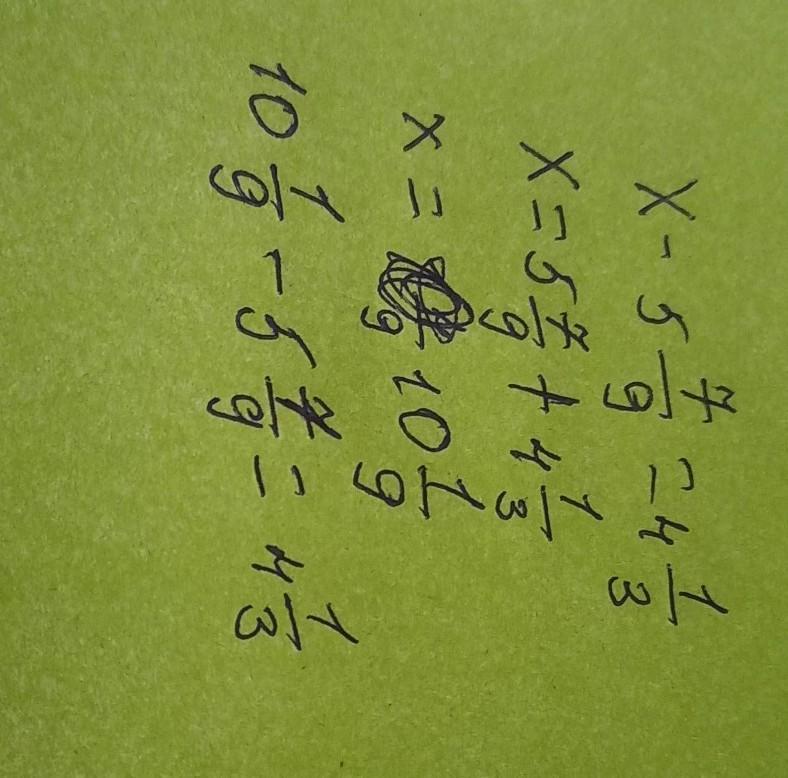 x - 5 7/9 = 4 1/3
x = 5 7/9 + 4 1/3
x = 10 1/9
10 1/9 - 5 7/9 = 4 1/3